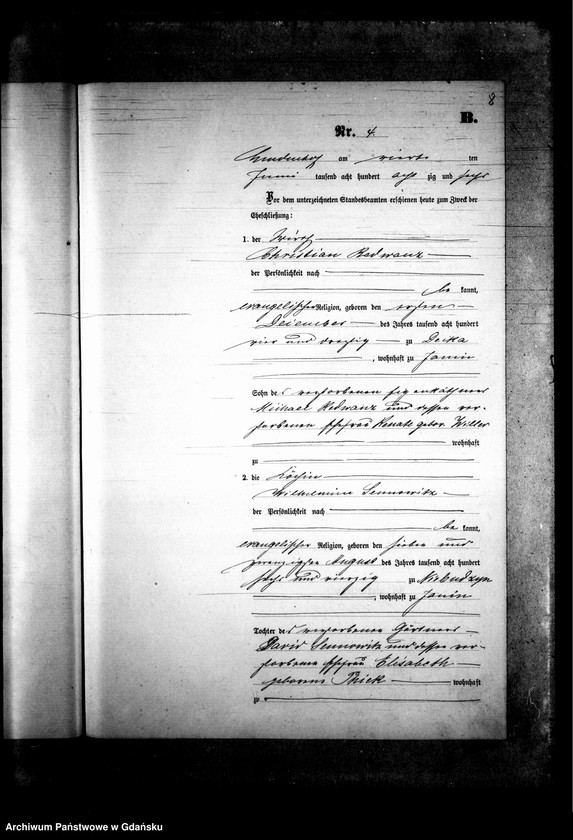 8
B.
Nr. 4.
am vierten
Juni tausend acht hundert acht zig und sechs
Vor dem unterzeichneten Standesbeamten erschienen heute zum Zweck der
Eheschließung:
1. der Wirth
Christian Redwanz
der Persönlichkeit nach
be kannt,
evangelischer Religion, geboren den ersten
Dezember des Jahres tausend acht hundert
vier und dreißig zu
, wohnhaft zu Janin
Sohn des verstorbenen Eigenkäthners
Michael Redwanz und dessen ver-
storbenen Ehefrau Renate gebor. Willer
wohnhaft
zu
2. die Köchin
Wilhelmine Sennowitz
der Persönlichkeit nach
be kannt,
evangelischer Religion, geboren den sieben und
zwanzigsten August des Jahres tausend acht hundert
sechs und vierzig zu
, wohnhaft zu Janin
Tochter des verstorbenen Gärtners
David Sennowitz und dessen ver-
storbenen Ehefrau Elisabeth
geborene Thick wohnhaft
zu
Archiwum Państwowe w Gdańsku